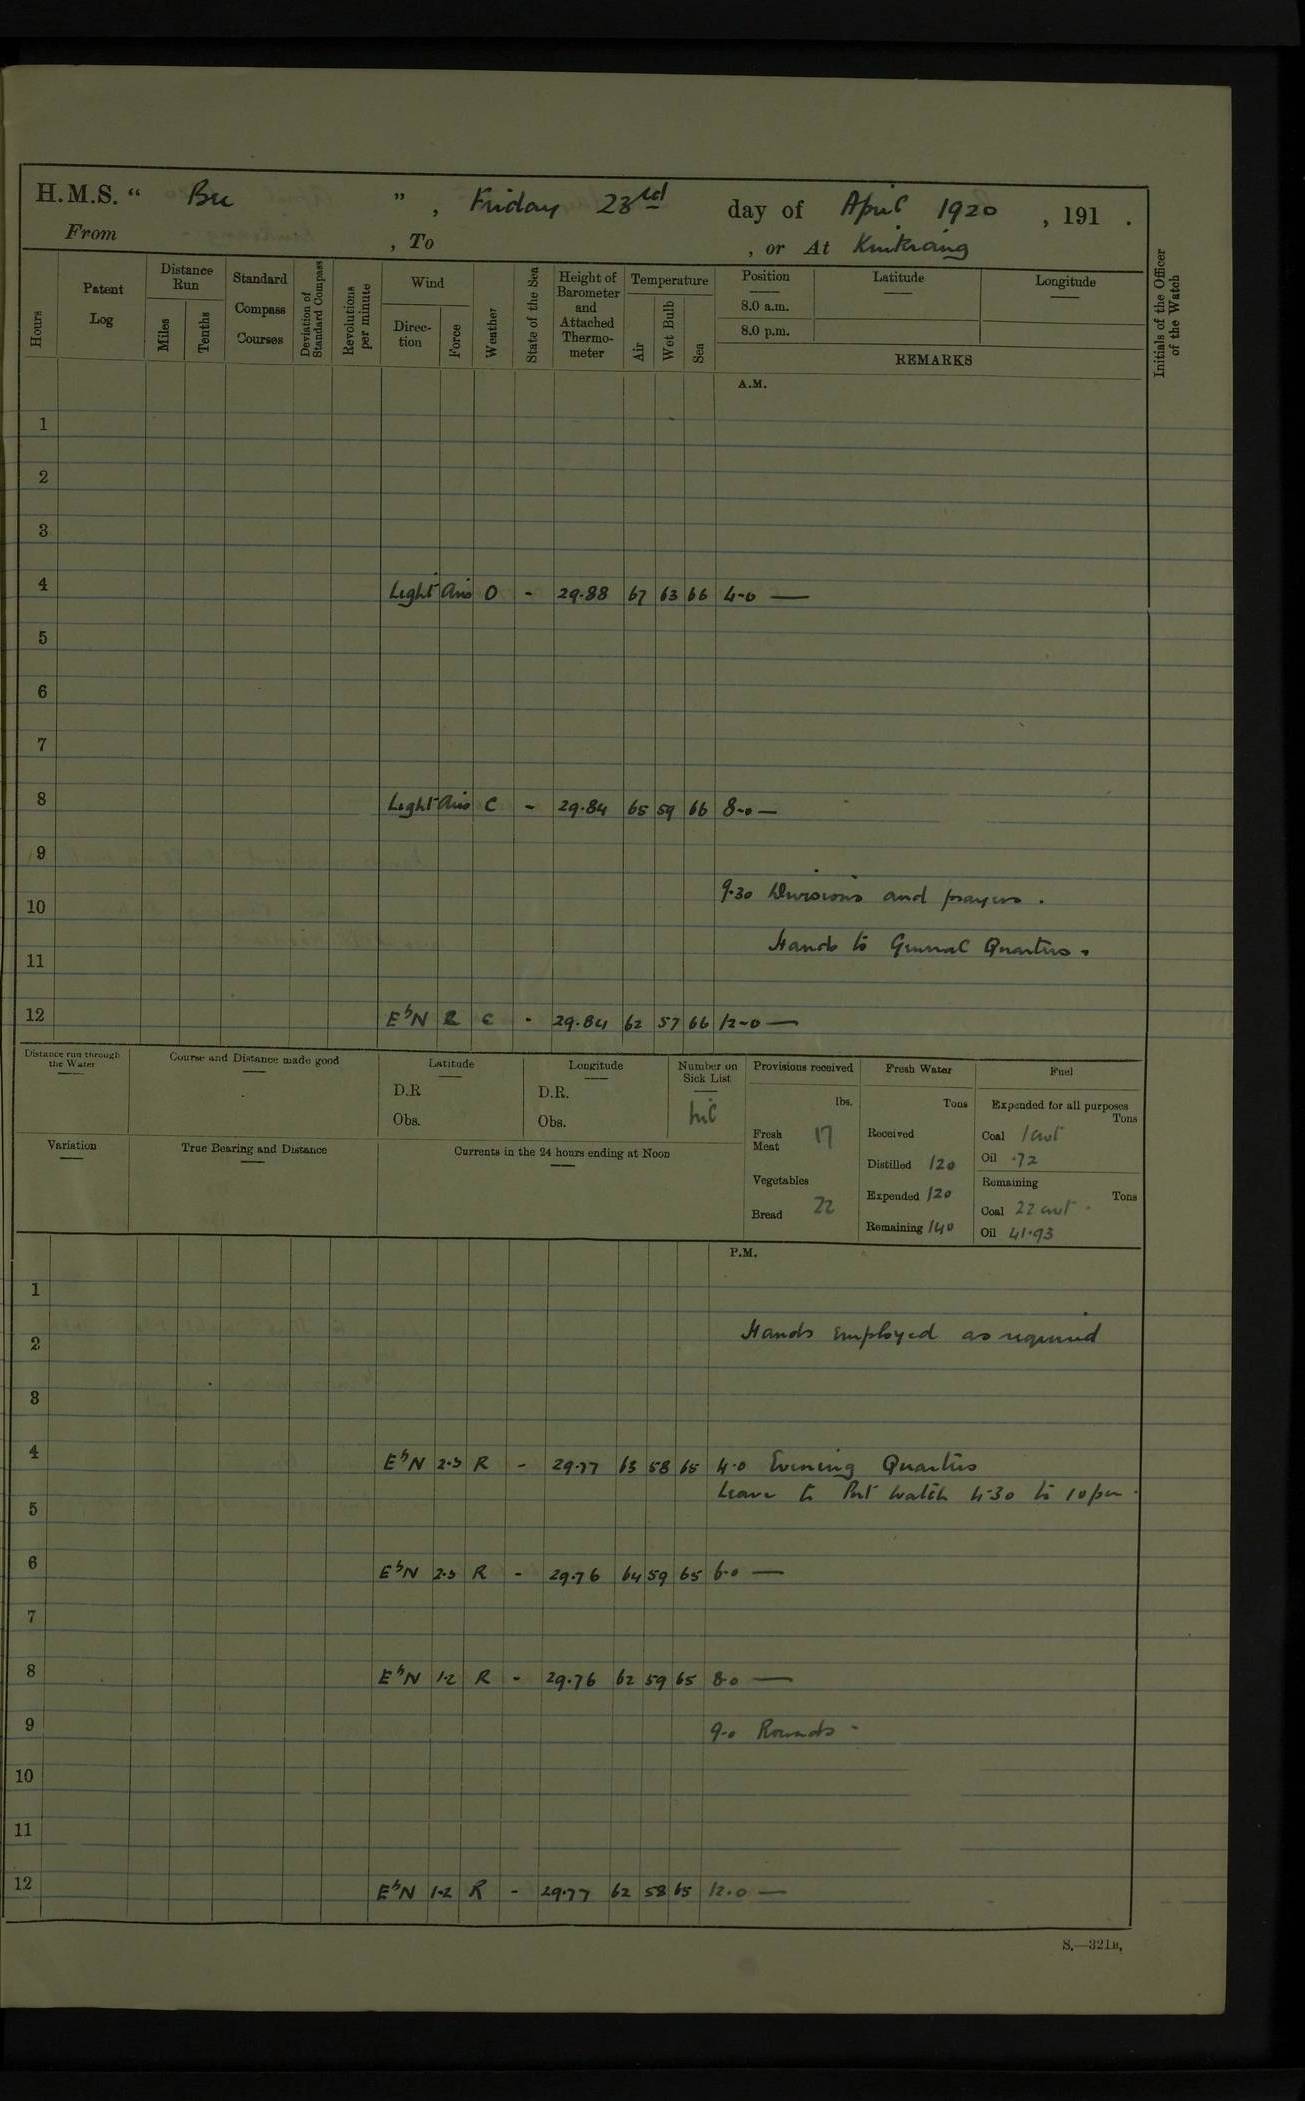 H.M.S. “ Bee ”, Friday 23rd day of April 1920, 191 .
From , To , or At Kiukiang
Hours
Patent Log
Distance Run
Miles
Tenths
Standard Compass Courses
Deviation of Standard Compass
Revolutions per minute
Wind
Direction
Force
Weather
State of the Sea
Height of Barometer and Attached Thermometer
Temperature
Air
Wet Bulb
Sea
Position
8.0 a.m.
8.0 p.m.
Latitude
Longitude
REMARKS
Initials of the Officer of the Watch
A.M.
1
2
3
4 Light Airs O - 29.88 67 63 66 4-0 —
5
6
7
8 Light Airs C - 29.84 65 59 66 8-0 —
9
9.30 Divisions and prayers.
10
Hands to General Quarters.
11
12 EbN 2 C - 29.84 62 57 66 12-0 —
Distance run through the Water
Course and Distance made good
Latitude
D.R
Obs.
Longitude
D.R.
Obs.
Number on Sick List
Nil
Provisions received
lbs.
Fresh Meat 17
Vegetables
Bread 22
Fresh Water
Tons
Received
Distilled 120
Expended 120
Remaining 140
Fuel
Expended for all purposes
Tons
Coal 1 cwt
Oil .72
Remaining
Tons
Coal 22 cwt
Oil 41.93
Variation
True Bearing and Distance
Currents in the 24 hours ending at Noon
P.M.
1
2 Hands employed as required
3
4 EbN 2.3 R - 29.77 63 58 65 4.0 Evening Quarters
Leave to Port Watch 4.30 to 10 pm.
5
6 EbN 2.3 R - 29.76 64 59 65 6.0 —
7
8 EbN 1.2 R - 29.76 62 59 65 8.0 —
9 9.0 Rounds -
10
11
12 EbN 1.2 R - 29.77 62 58 65 12.0 —
S.—321B,